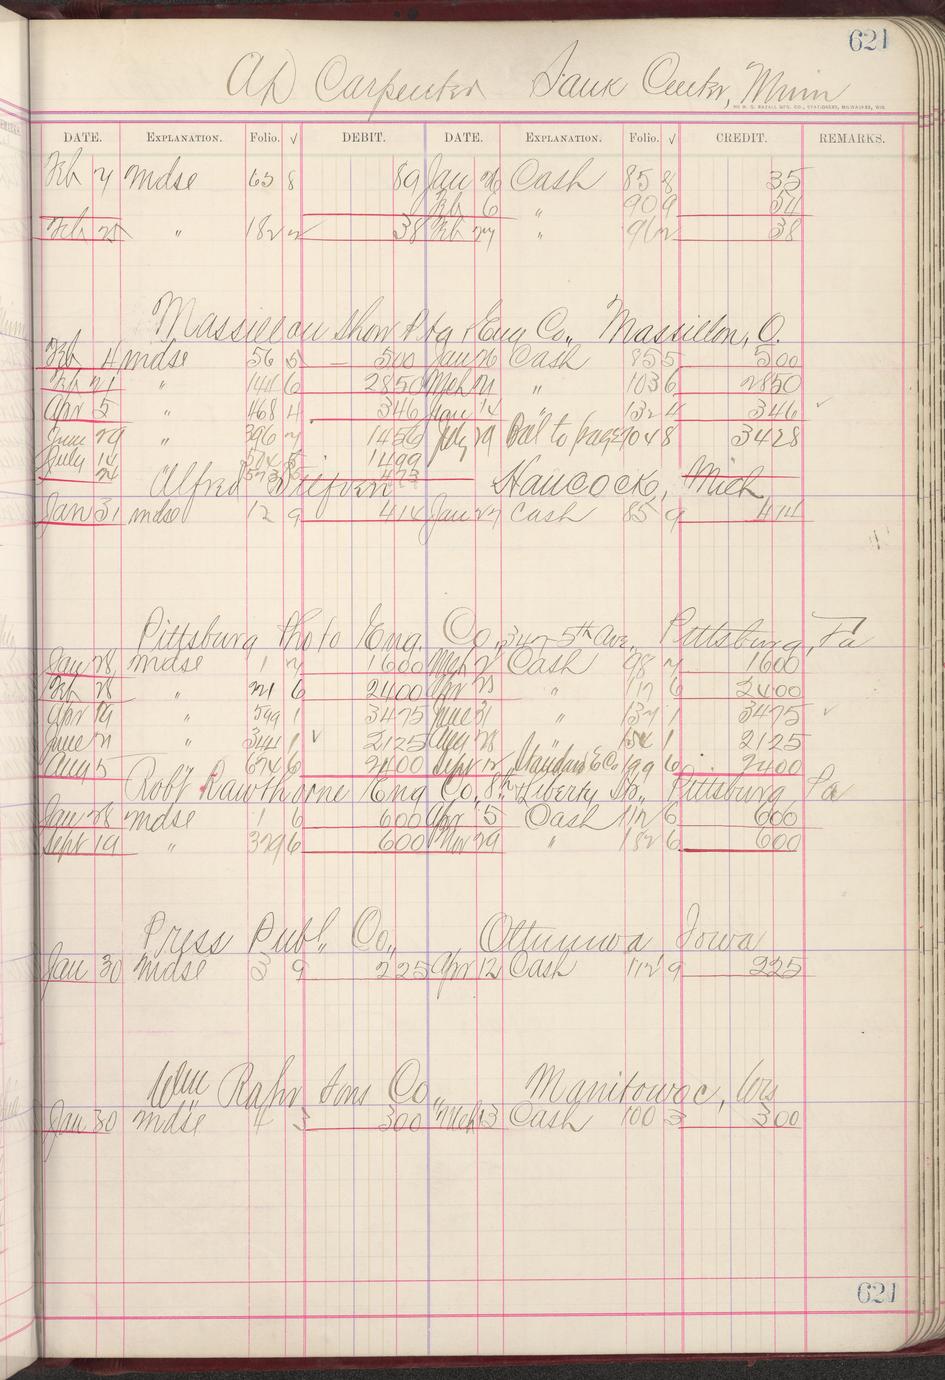 621
AD Carpenter Sauk Center, Minn
THE H. G. RAZALL MFG. CO., STATIONERS, MILWAUKEE, WIS.
DATE. EXPLANATION. Folio. √ DEBIT. DATE. EXPLANATION. Folio. √ CREDIT. REMARKS.
Feb 7 Mdse 65 8 89 Jan 26 Cash 85 8 35
Feb 6 " 90 9 54
Feb 25 " 182 2 38 Feb 27 " 96 2 38
Massillon Show Ptg & Eng Co., Massillon, O.
Feb. 4 mdse 56 5 500 Jan 26 Cash 85 5 500
Feb 21 " 141 6 2850 Mch 21 " 103 6 2850
Apr 5 " 468 4 346 14 " 132 4 346 ✓
June 29 " 396 7 1456 July 29 Ball to page 704 8 3428
July 14 514 5 1499
24 573 5 473
Alfred Hancock, Mich,
Jan 31 mdse 12 9 414 Jan 27 Cash 85 9 414
Pittsburg Photo Eng. Co., 347-5th Ave., Pittsburg, Pa
Jan 28 mdse 1 7 1600 Mch 2 Cash 98 7 1600
Feb 28 " 221 6 2400 Apr 25 " 117 6 2400
Apr 19 " 599 1 3475 June 21 " 137 1 3475 ✓
June 21 " 344 1 ✓ 2125 Aug 28 " 154 1 2125
Aug 5 674 6 2400 Sept 12 Standard E Co 199 6 2400
Robt Rawthorne Eng Co., 8th & Liberty St., Pittsburg Pa
Jan 28 mdse 1 6 600 Apr 5 Cash 112 6 600
Sept 19 " 329 6 600 Nov 29 " 182 6 600
Press Publ. Co., Ottumwa Iowa
Jan 30 mdse 9 225 Apr 12 Cash 112 9 225
Wm Rahr Sons Co., Manitowoc, Wis
Jan 30 mdse 4 3 300 Mch 13 Cash 100 3 300
621